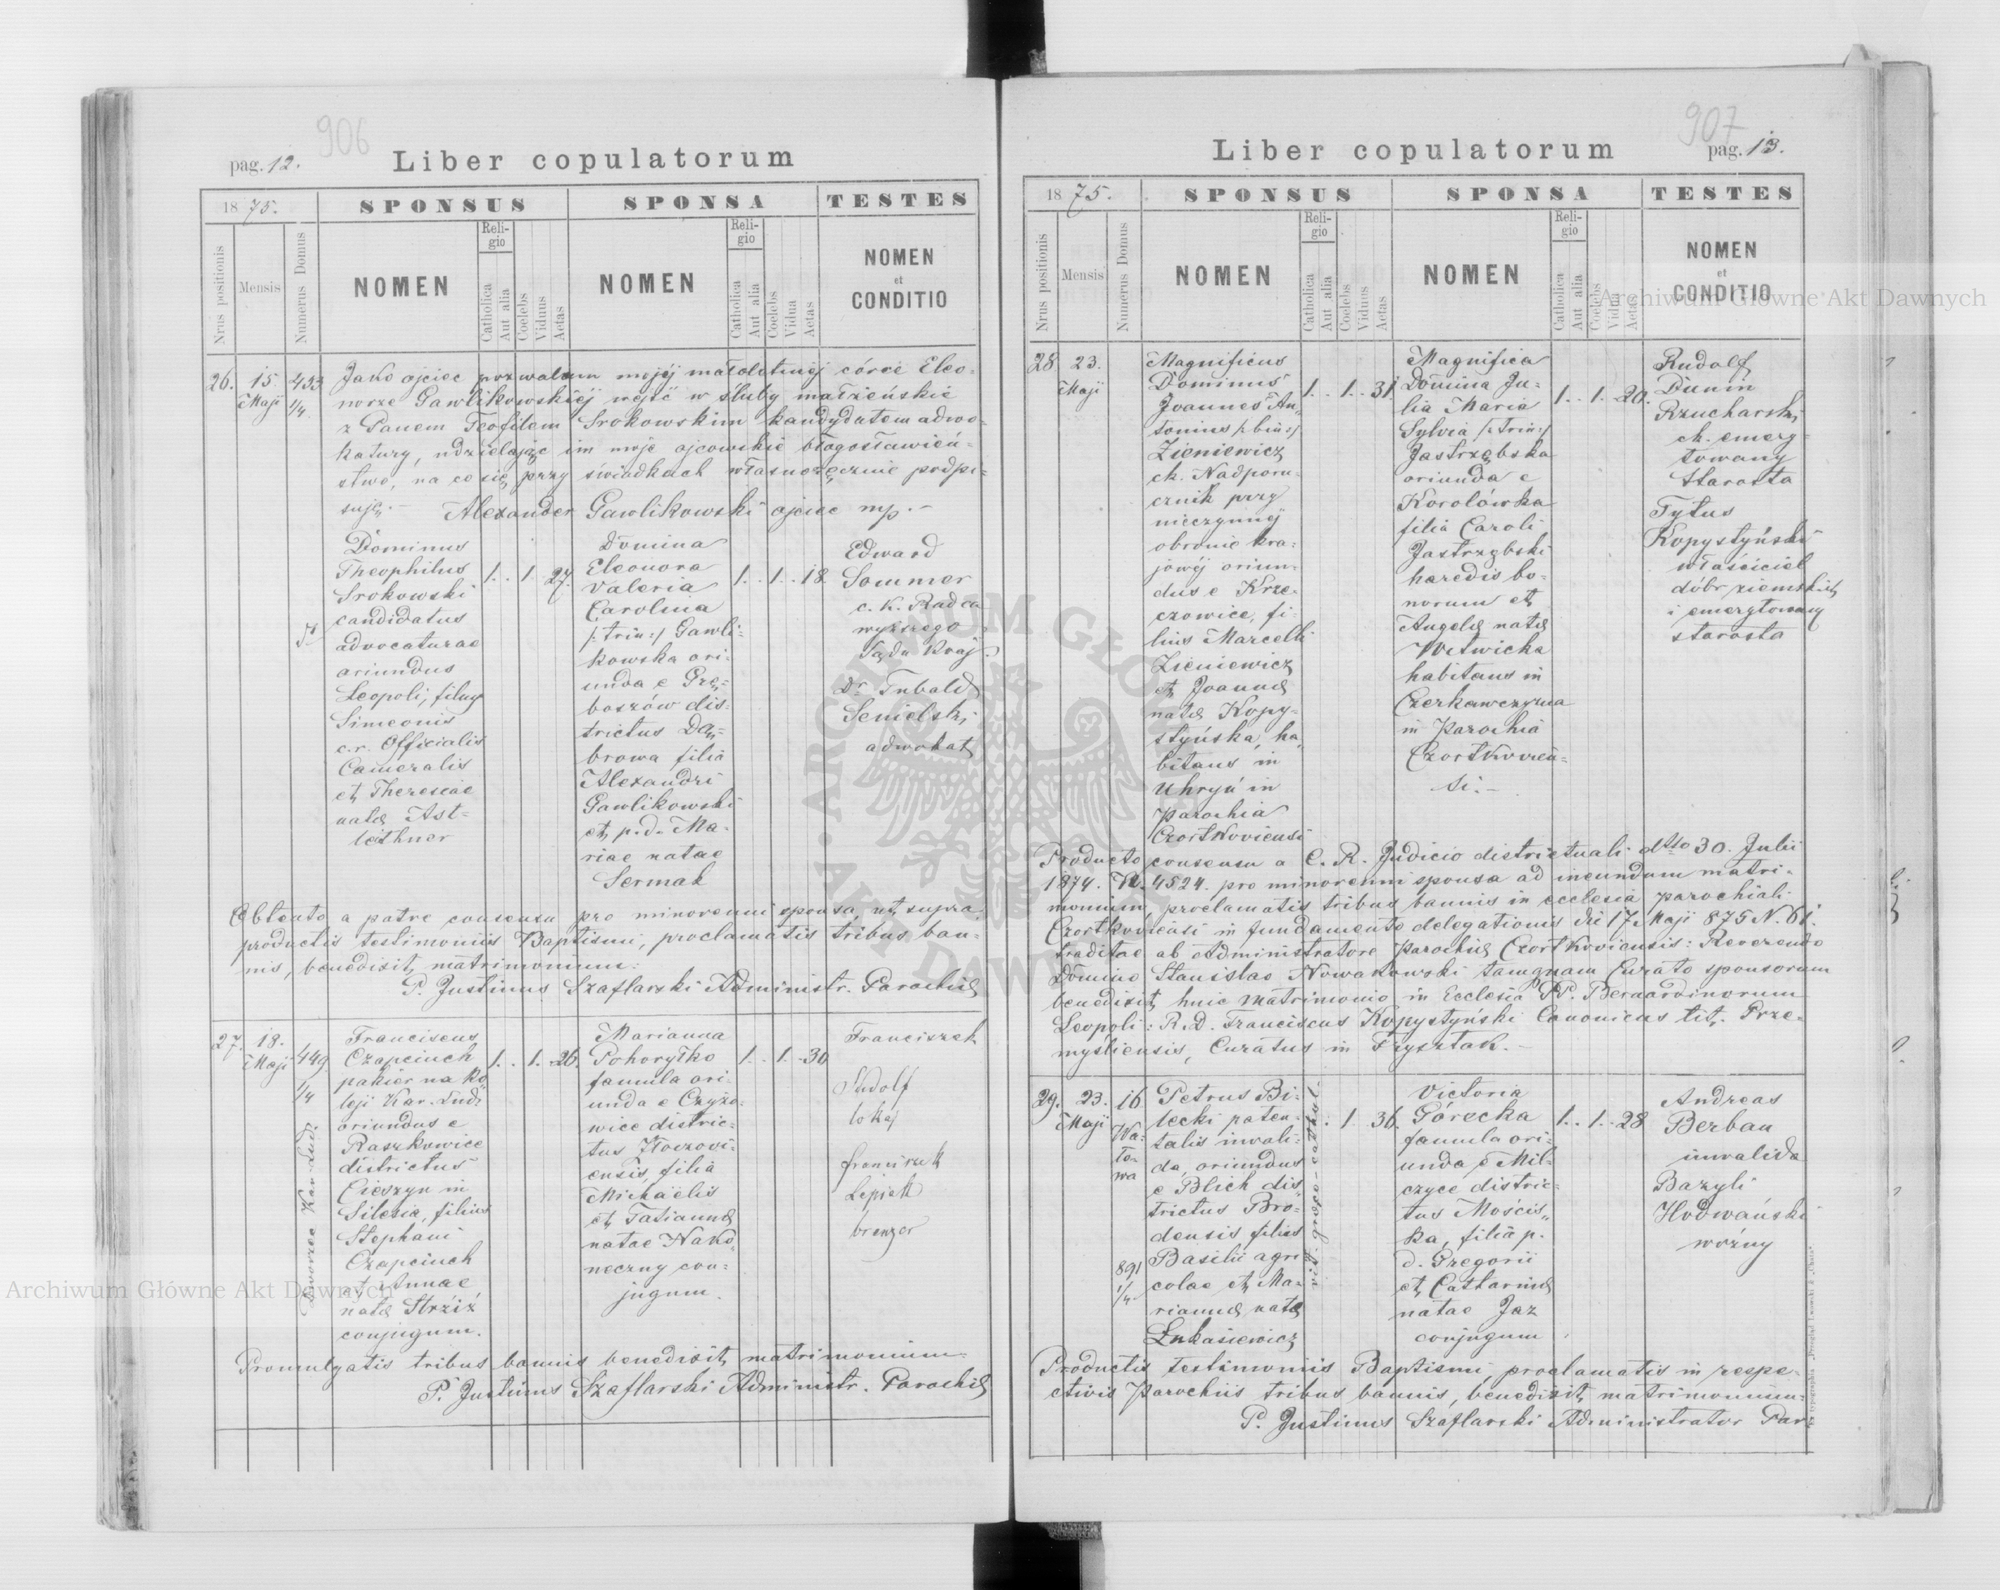 906
pag. 12.
Liber copulatorum
1875.
SPONSUS
SPONSA
TESTES
Nrus positionis
Mensis
Numerus Domus
NOMEN
Religio
Catholica
Aut alia
Coelebs
Viduus
Aetas
NOMEN
Religio
Catholica
Aut alia
Coelebs
Vidua
Aetas
NOMEN
et
CONDITIO
26.
15
Maji
433
1/4
Jako ojciec pozwalam mojéj małoletniéj córce Eleo-
norze Gawlikowskiéj wejść w śluby małżeńskie
z Panem Teofilem Srokowskim kandydatem adwo-
katury, udzielając im moje ojcowskie błogosławień-
stwo, na co się przy świadkach własnoręcznie podpi-
suję.- Alexander Gawlikowski ojciec mp.-
Dominus
Theophilus
Srokowski
candidatus
advocaturae
oriundus
Leopoli, filius
Simeonis
c.r. Officialis
Cameralis
et Theresiae
natae Ast-
leithner
1. . 1. 27.
Domina
Eleonora
Valeria
Carolina
/:trin:/ Gawli-
kowska ori-
unda e Grę-
boszów dis-
trictus Dą-
browa filia
Alexandri
Gawlikowski
et p.d. Ma-
riae natae
Sermak
1. . 1. . 18.
Edward
Sommer
c. k. Radca
wyższego
Sądu Kraj.
Dr. Tubald
Semilski
adwokat
Obtento a patre consensu pro minorenni sponsa, ut supra,
productis testimoniis Baptismi, proclamatis tribus ban-
nis, benedixit matrimonium:
P. Justinus Szaflarski Administr. Parochiae
27.
18.
Maji
449.
1/4
Dworzec Kar. Lud.
Franciscus
Czapciuch
pakier na ko-
leji Kar. Lud.
oriundus e
Raszkowice
districtus
Cieszyn in
Silesia, filius
Stephani
Czapciuch
et Annae
natae Strziż
conjugum.
1. . 1. 26.
Marianna
Pohoryłko
famula ori-
unda e Czyżo-
wice distric-
tus Złoczovi-
ensis, filia
Michaëlis
et Tatianae
natae Nako-
neczny con-
jugum.
1. . 1. . 30
Franciszek
Rudolf
lokaj
franciszek
Lepiek
bronzer
Promulgatis tribus bannis benedixit matrimonium
P. Justinus Szaflarski Administr. Parochiae
907
pag. 13.
Liber copulatorum
1875.
SPONSUS
SPONSA
TESTES
Nrus positionis
Mensis
Numerus Domus
NOMEN
Religio
Catholica
Aut alia
Coelebs
Viduus
Aetas
NOMEN
Religio
Catholica
Aut alia
Coelebs
Vidua
Aetas
NOMEN
et
CONDITIO
28
23.
Maji
Magnificus
Dominus
Joannes An-
tonius /:bin:/
Zieniewicz
ck. Nadporu-
cznik przy
nieczynnéj
obronie kra-
jowéj oriun-
dus e Krze-
czowice, fi-
lius Marcelli
Zieniewicz
et Joannae
natae Kopy-
styńska, ha-
bitans in
Uhryń in
parochia
Czortkoviensi
1. . 1. . 31.
Magnifica
Domina Ju-
lia Maria
Sylvia /:trin:/
Jastrzębska
oriunda e
Korolówka
filia Caroli
Jastrzębski
haredis bo-
norum et
Angelae natae
Wetwicka
habitans in
Czerkawczyzna
in Parochia
Czortkovien-
si.-
1. . 1. . 20.
Rudolf
Dunin
Rzucharski
ck. emery-
towany
Starosta
Tytus
Kopystyński
właściciel
dóbr ziemskich
i emerytowany
starosta
Producto consensu a C. R. Judicio districtuali dtto 30. Julii
1874. N. 4524. pro minorenni sponsa ad ineundum matri-
monium, proclamatis tribus bannis in ecclesia parochiali
Czortkoviensi in fundamento delegationis die 17. Maji 875 N. 61.
traditae ab Administratore parochiae Czortkoviensis: Reverendo
Domino Stanislao Nowakowski tamquam Curato sponsorum
benedixit huic matrimonio in Ecclesia PP. Bernardinorum
Leopoli: R.D. Franciscus Kopystyński Canonicus tit. Prze-
mysliensis, Curatus in Frysztak.-
29.
23.
Maji
16
Wa-
ło-
wa
891
1/4
Petrus Bi-
lecki paten-
talis invali-
da, oriundus
e Blich dis-
trictus Bro-
densis filius
Basilii agri-
colae et Ma-
riannae natae
Łukasiewicz
rit. graeco-cathol.
. 1. 36.
Victoria
Górecka
famula ori-
unda e Mil-
czyce distric-
tus Mościs-
ka, filia p.
d. Gregorii
et Catharinae
natae Jaz
conjugum
1. . 1. . 28
Andreas
Berbau
invalida
Bazyli
Hodwański
woźny
Productis Testimoniis Baptismi, proclamatis in respe-
ctivis Parochiis tribus bannis, benedixit matrimonium-
P. Justinus Szaflarski Administrator Par
Archiwum Główne Akt Dawnych
Archiwum Główne Akt Dawnych
ARCHIWUM GŁÓWNE AKT DAWNYCH